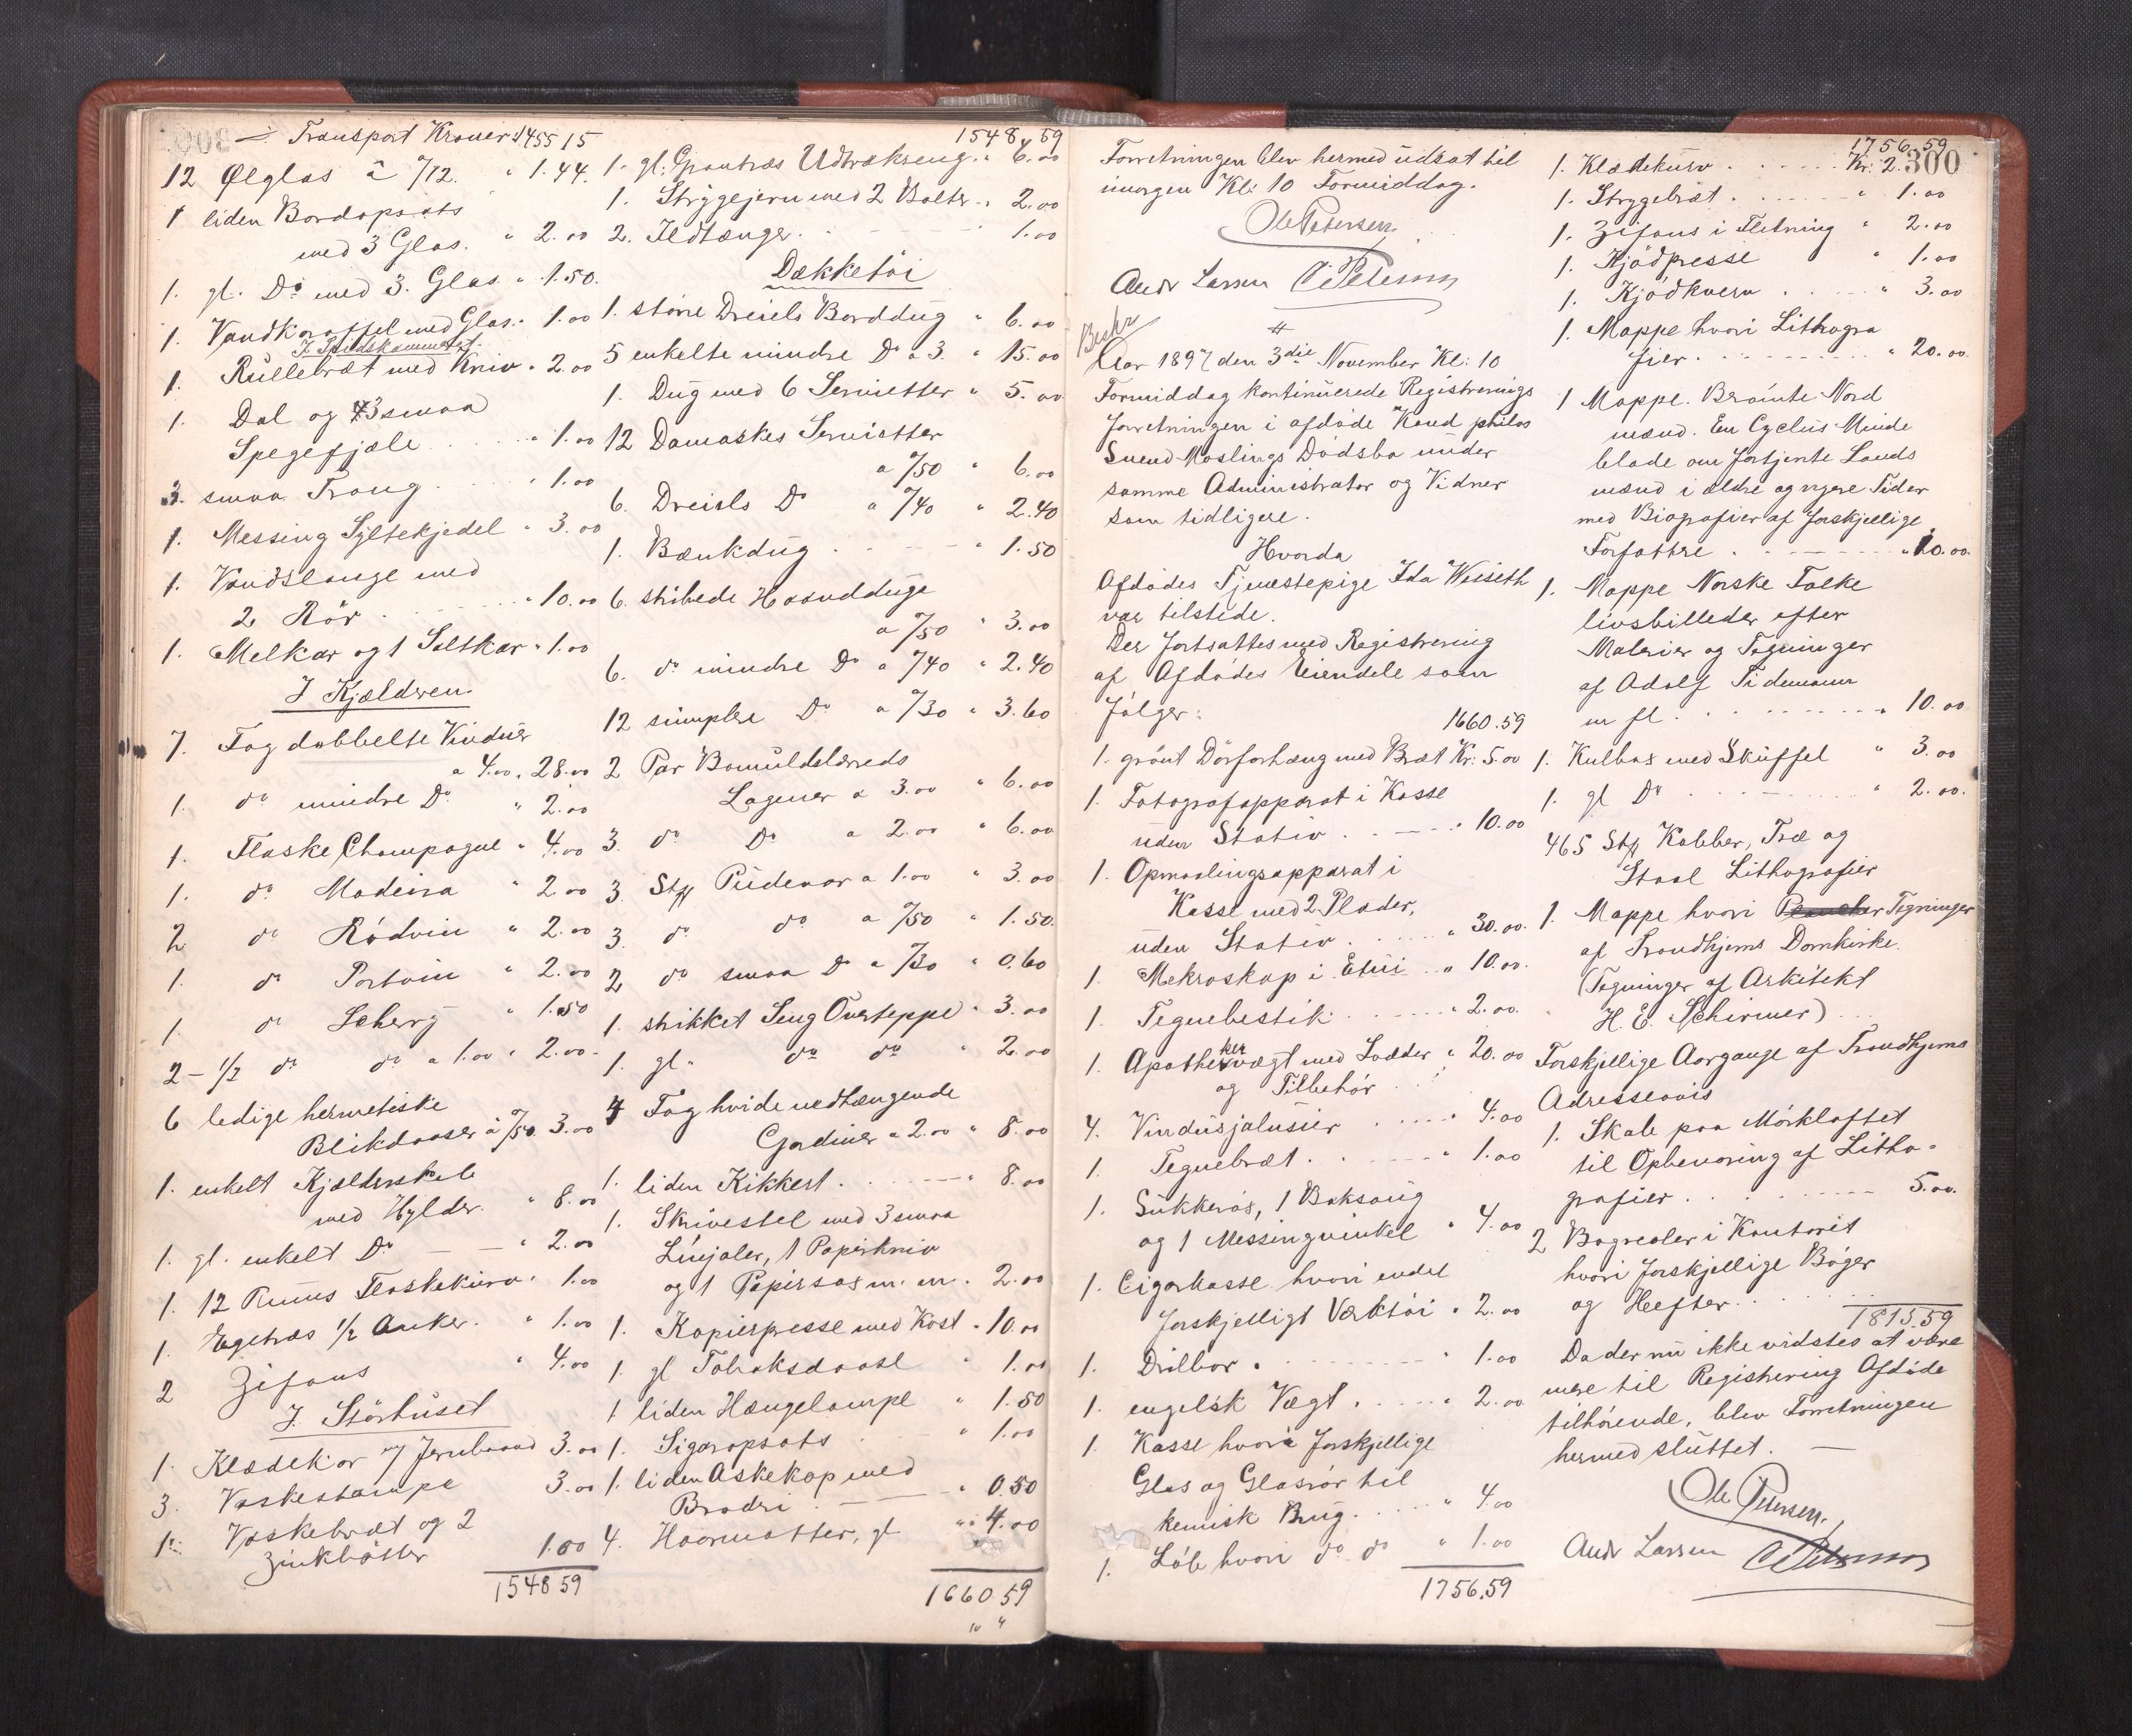 Transport Kroner 1455 15
12 Ølglas à "/12. " 1.44.
1 liden Bordopsats
med 3 Glas. " 2.00
1. gl. Do med 3. Glas " 1.50.
1. Vandkaraffel med Glas " 1.00
I Spiskammeret.
1. Rullebræt med Kniv " 2.00
1. Dal og 3 smaa
Spegefjæle " 1.00
3. smaa Traug " 1.00
1. Messing Syltekjedel " 3.00
1. Vandslange med
2 Rör " 10.00
1. Melkar og 1 Saltkar " 1.00
I Kjælderen
7. Fag dobbelte Vinduer
a 4.00 " 28.00
1. do mindre Do " 2.00
1. Flaske Champagne " 4.00
1. do Madeira " 2.00
2 do Rödvin " 2.00
1. do Portvin " 2.00
1. do Scherry " 1.50
2 - 1/2 do do a 1.00 " 2.00
6 ledige hermetiske
Blikdaaser à "/50. 3.00
1. enkelt Kjælderskab
med Hylder. " 8.00
1. gl. enkelt Do " 2.00
1. 12 Rums Flaskekurv " 1.00
1. Egetræs 1/2 Anker. " 1.00
2 Zifons " 4.00
I. Störhuset
1. Klædekar m/ Jernbaand 3.00
3. Vaskestampe 3.00
1. Vaskebræt og 2
Zinkbötter 1.00
1548 59
1548 59
1. gl. Grantræs Udtrækseng " 6.00
1. Strygejern med 2 Bolter " 2.00
2. Ildtænger 1.00
Dækketöi
1. större Dreiels Borddug " 6.00
5 enkelte mindre Do a 3. " 15.00
1. Dug med 6 Servietter " 5.00
12 Damaskes Servietter
a "/50 " 6.00
6. Dreiels Do a "/40 " 2.40
1. Bænkdug " 1.50
6. stribede Haandduge
a "/50 " 3.00
6. do mindre Do a "/40 " 2.40
12 simplere Do a "/30 " 3.60
2 Par Bomuldslærreds
Lagener a 3.00 " 6.00
3. do Do a 2.00 " 6.00
3. Stk Pudevar a 1.00 " 3.00
3. do do a "/50 " 1.50.
2 do smaa Do a "/30 " 0.60
1. strikket Seng Overteppe " 3.00
1. gl. do do " 2.00
4 Fag hvide nedhængende
Gardiner a 2.00 " 8.00
1. liden Kikkert. " 8.00
1. Skrivestel med 3 smaa
Linjaler, 1 Papirkniv
og 1 Papirsax m. m. " 2.00
1. Kopierpresse med Kost " 10.00
1. gl Tobaksdaase " 1.00
1 liden Hængelampe " 1.50
1. Sigaropsats " 1.00
1. liden Askekop med
Broderi " 0.50
4. Haarmatter, gl " 4.00
1660 59
Forretningen blev hermed udsat til
imorgen Kl: 10 Formiddag.
Ole Petersen.
Andr Larsen C Petersen
Beskr
Aar 1897 den 3die November Kl: 10
Formiddag kontinuerede Registrerings
forretningen i afdöde Kand philos
Svend Moslings Dödsbo under
samme Administrator og Vidner
som tidligere.
Hvorda
Afdödes Tjenestepige Ida Weiseth
var tilstede.
Der fortsattes med Registrering
af Afdödes Eiendele som
fölger: 1660.59
1. grönt Dörforhæng med Bræt Kr: 5.00
1. Fotografapparat i Kasse
uden Stativ " 10.00
1. Opmaalingsapparat i
Kasse med 2 Plader,
uden Stativ " 30.00.
1. Mekroskop i Etui " 10.00.
1. Tegnebestik " 2.00.
1. Apothekervægt med Lodder " 20.00
og Tilbehör
4. Vindusjalusier " 4.00
1. Tegnebræt " 1.00
1. Sukkerös, 1 Baksaug
og 1 Messingvinkel " 4.00
1. Cigarkasse hvori endel
forskjelligt Værktöi " 2.00
1. Drilbor " 1.00
1. engelsk Vægt " 2.00
1. Kasse hvori forskjellige
Glas og Glasrör til
kemisk Brug " 4.00
1. Löb hvori do do " 1.00
1756.59
1756.59
300
1. Klædekurv Kr: 2.
1. Strygebræt " 1.00
1. Zifons i Fletning " 2.00
1. Kjödpresse " 1.00
1. Kjödkvern " 3.00
1. Mappe hvori Lithogra
fier " 20.00
1 Mappe. Berömte Nord
mænd. En Cyclus Minde
blade om fortjente Lands
mænd i ældre og nyere Tider
med Biografier af forskjellige
Forfattre " 10.00
1. Mappe Norske Folke
livsbilleder efter
Malerier og Tegninger
af Adolf Tidemann
m fl " 10.00
1. Kulbox med Skuffel " 3.00
1. gl Do " 2.00.
465 Stk Kobber, Træ og
Staal Lithografier
1. Mappe hvori Plancher Tegninger
af Trondhjems Domkirke.
(Tegninger af Arkitekt
H. E. Schirmer)
Forskjellige Aargange af Trondhjems
Adresseavis
1. Skab paa Mörkloftet
til Opbevaring af Litho-
grafier 5.00.
2 Bogreoler i Kontoret
hvori forskjellige Böger
og Hefter.
1815.59
Da der nu ikke vidstes at være
mere til Registrering Afdöde
tilhörende, blev Forretningen
hermed sluttet.
Ole Petersen.
Andr Larsen C Petersen